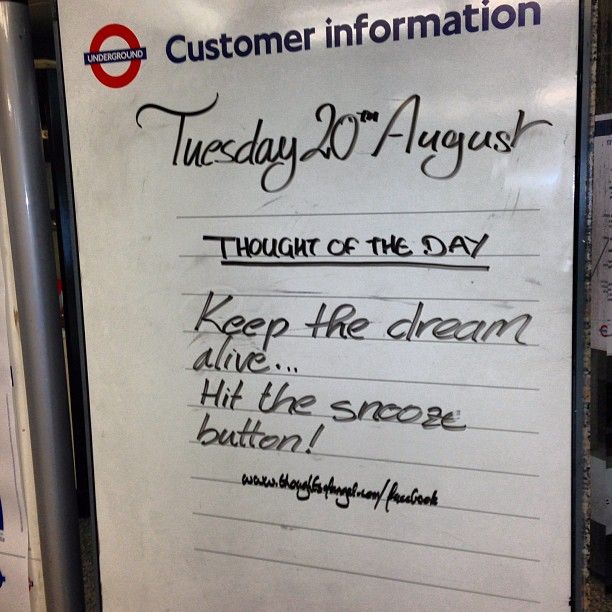 UNDERGROUND
Customer information
Tuesday 20TH August
THOUGHT OF THE DAY
Keep the dream
alive...
Hit the snooze
button!
www.thoughtsofangel.com/facebook